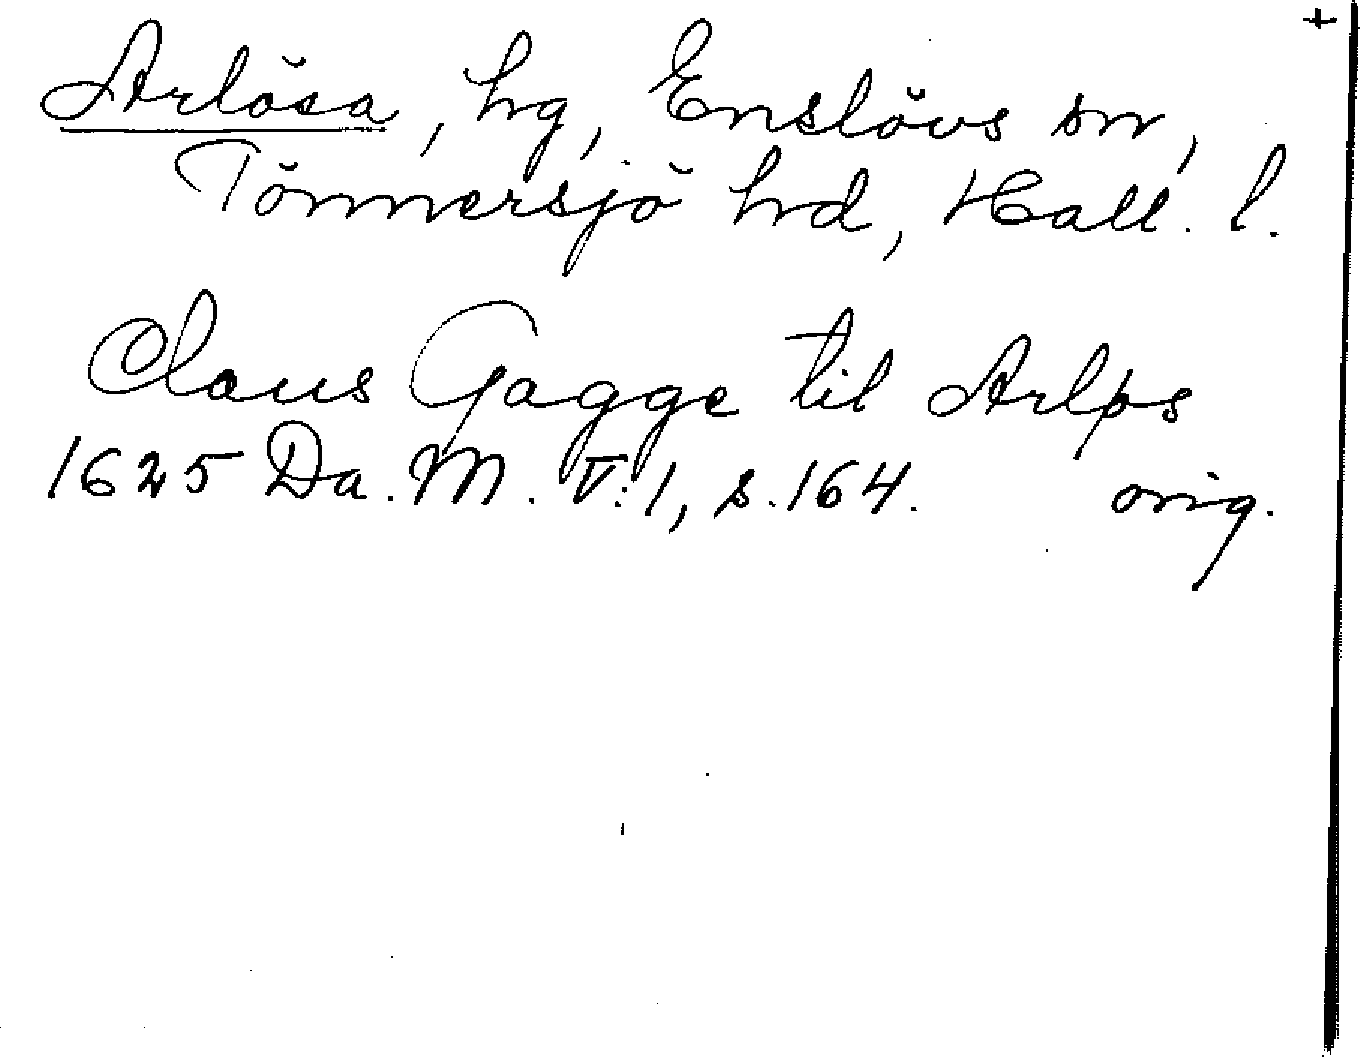 +
Arlösa, hg, Enslövs sn,
Tönnersjö hd, Hall. l.
Claus Gagge til Arløs
1625 Da. M. V:1, s. 164. orig.